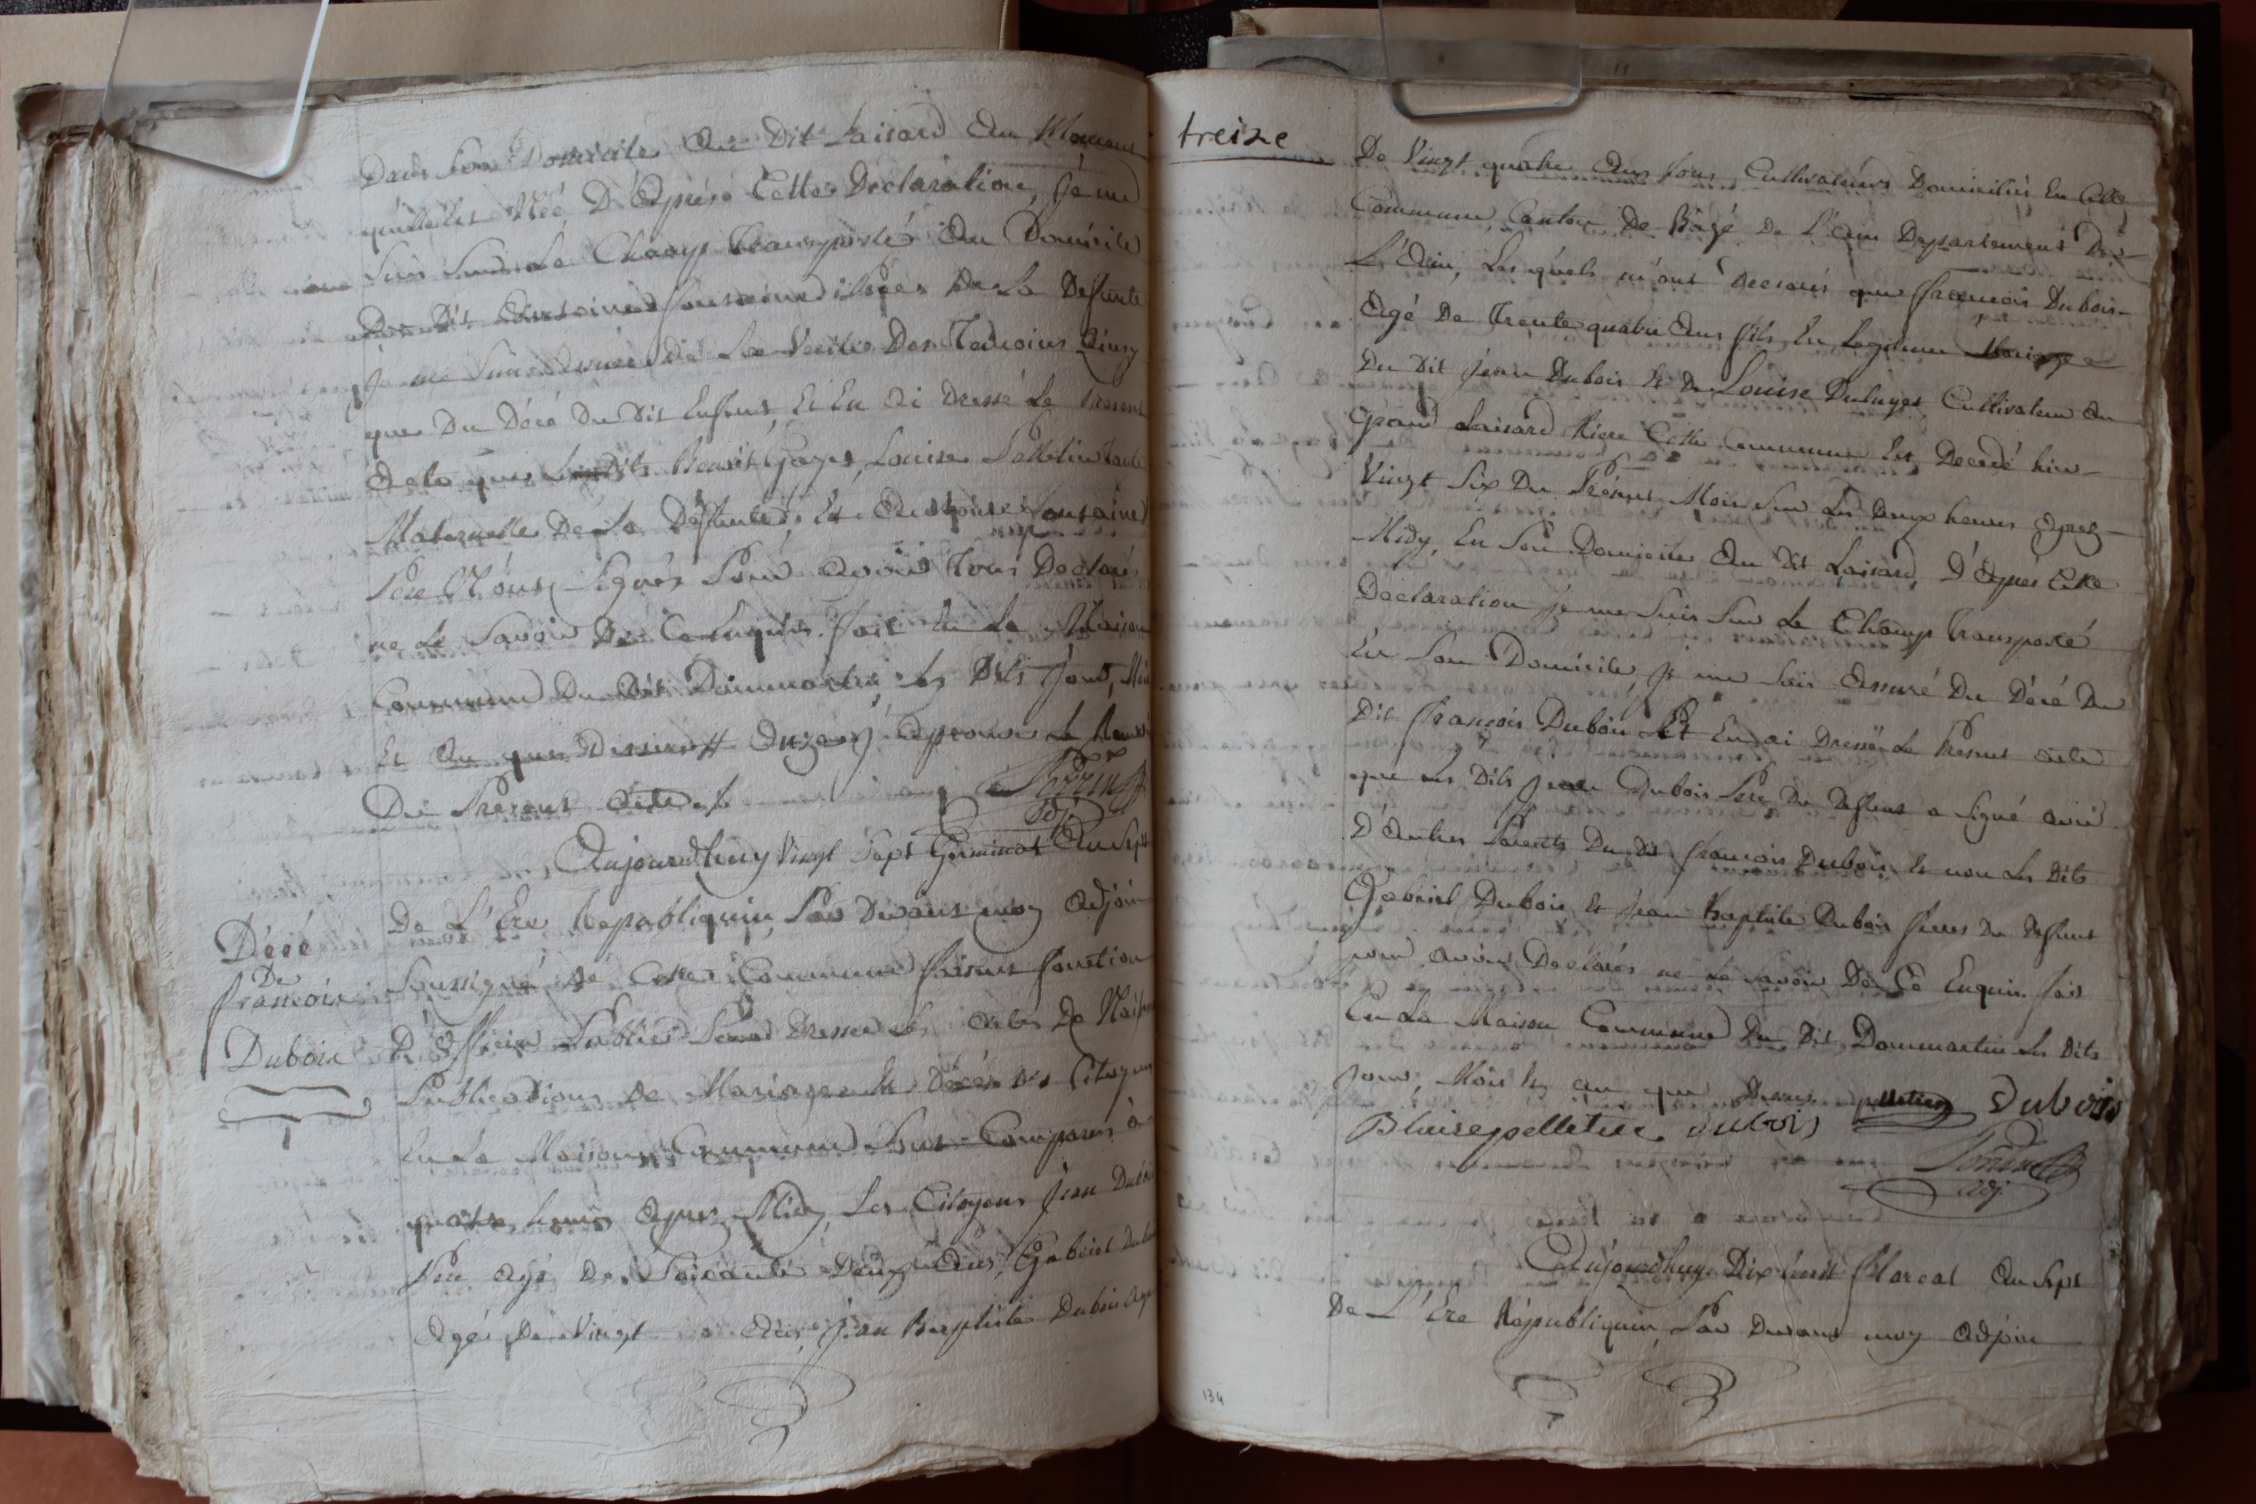 Dans Son Domicile Au Dit Laisard Au Moment
qu'elle Est Née, D'Aprésé Cette Déclaration, Je me
Suis Sur Le Champ Transporté Au Domicile
Du Dit Antoine Fontaine Epoux De La Defunte
Je me Suis Assuré De La Verité Des Temoins Ainsy
que Du Décé Du Dit Enfant Et En Ai Dressé Le Présent
Acte que Les Dits Benoit Gayet, Louise Pelletier Tante
Maternelle De La Deffunte, Et Antoine Fontaine
Pere N'ont Signés Pour Avoir Tous Declarés
ne Le Savoir De Ce Enquis. Fait En La Maison
Commune Du Dit Dommartin, Les Dits Jour, Mois
Et An que Dessus Approuvé
Du Présent Acte
Adj.
Aujourdhuy Vingt Sept Germinal An Sept
De L'Ere Republiquin, Par Devant moy Adjoin
Soussigné De Cette Commune Faisant Fonction
D'Officier Publier Pour Dresser Les Actes De Naiss
Publications De Mariages Et Décés Des Citoyens
En La Maison Commune Sont Comparus à
quatre heures Apres Midy, Les Citoyens Jean Dubois
Pere Agé De Soixante Deux Ans, Gabriel Dubois
Agé De Vingt Ans, Jean Baptiste Dubois Agé
Décé
De
François
Dubois
treize
De Vingt quatre Ans tous Cultivateurs Domiciliés En Cette
Commune, Canton De Bagé De L'Ain Departement De
L'Ain, Lesquels m'ont Declarés que François Dubois
Agé De Trente quatre Ans Fils En Legitime Mariage
Du Dit Jean Dubois Et De Louise Duluyes Cultivateur Au
Grand Laisard Riere Cette Commune Est Decedé hier
Vingt Six Du Présent Mois Sur Les Deux heures Apres
Midy, En Son Domicile Au Dit Laisard, D'Aprés Cette
Déclaration Je me Suis Sur Le Champ Transporté
En Son Domicile, Je me Suis Assuré Du Décé Du
Dit François Dubois Et En ai Dressé Le Présent Acte
que Les Dits Jean Dubois Pere Du Deffunt a Signé avec
D'Autres Parents Du Dit François Dubois Et non Les Dits
Gabriel Dubois Et Jean Baptiste Dubois Freres Du Deffunt
pour avoir Declarés ne Le Savoir De Ce Enquis. Fait
En La Maison Commune Du Dit Dommartin Les Dits
Jour, Mois Et an que Dessus pelletier Dubois
Blaise pelletier dubois
Adj.
Aujourdhuy Dix huit Floreal An Sept
De L'Ere Républiquin, Par Devant moy Adjoin
134